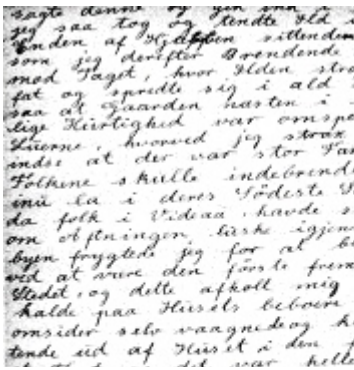 sagte denne og gen ind i
jeg saa tog og tendte Ild i
Enden af Kjæppen sittendem
som jeg derifter Brendende
mod Taget, hvor Ilden stra
fat og spredte sig i ald
saa at Gaarden næsten i
lige Hurtighed var omspæ
Luerne, hvorved jeg strax
indse at der var stor Far
Folkene skulle indebrende
inu laa i deres Södeste
da folk i Videaa, havde
om Aftningen, luske igjen
byen frygtede jeg for at bli
ved at være den förste frem
Stedet, og dette afholt mig
kalde paa Husets beboere
omsider selv vaagnede og k
tende ud af Huset i den
det var heller